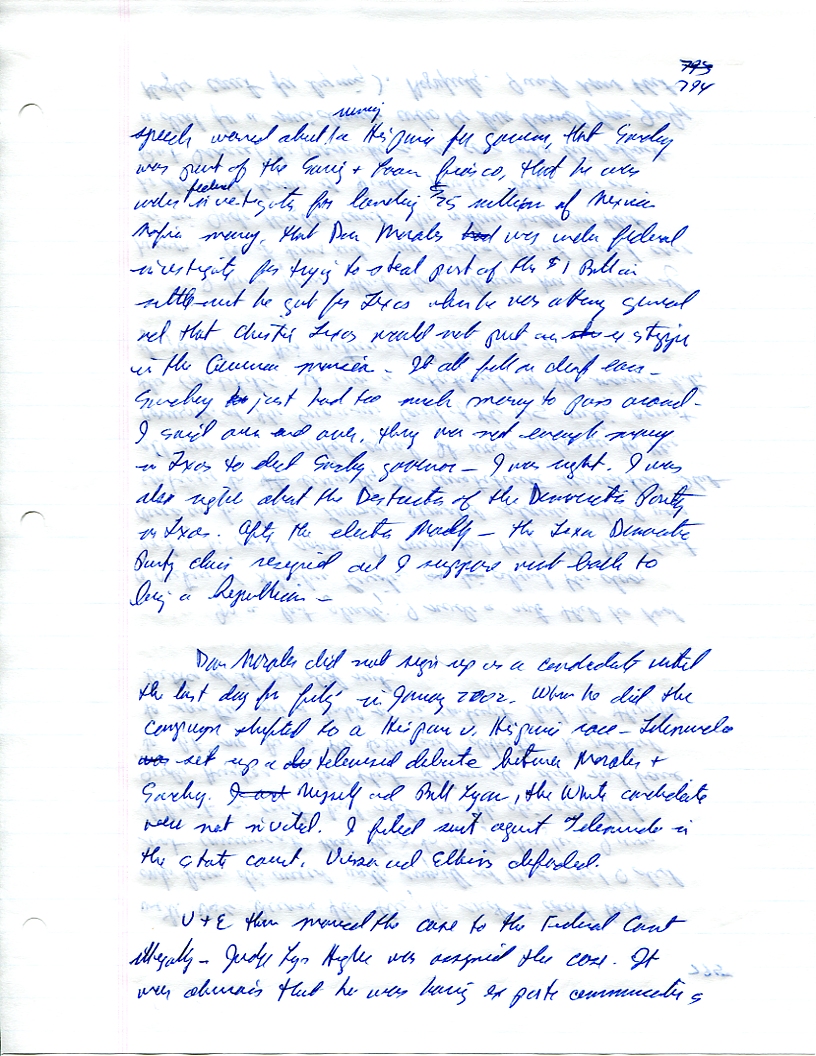 793
794
running
speech warned about a Hispanic for governor, that Sanchez
was part of the Saving + Loan fiasco, that he was
under federal investigation for laundering $25 million of Mexican
Mafia money, that Dan Morales had was under federal
investigation for trying to steal part of the $1 Billion
settlement he got for Texas when he was attorney general
and that Christian Texas would not put on a
in the Governor mansion - It all fell on deaf ears -
Sanchez just had too much money to pass around -
I said over and over, there was not enough money
in Texas to elect Sanchez governor - I was right. I was
also right about the Destruction of the Democratic Party
in Texas. After the election Molly - the Texas Democratic
Party chair resigned and I suppose went back to
being a Republican -
Dan Morales did not sign up as a candidate until
the last day for filing in January 2002. When he did the
campaign shifted to a Hispanic v. Hispanic race - Telemundo
was set up a de televised debate between Morales +
Sanchez. Myself and Bill Lyon, the White candidate
were not invited. I filed suit against Telemundo in
the state court. Vinson and Elkins defended.
V + E then moved the case to the Federal Court
illegally - Judge Lynn Hughes was assigned the case. It
was obvious that he was having ex parte communications